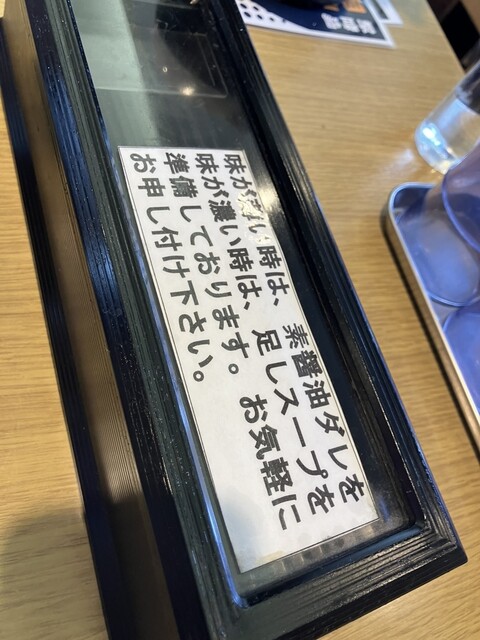 味が薄い時は、素醤油ダレを
味が濃い時は、足しスープを
準備しております。お気軽に
お申し付け下さい。